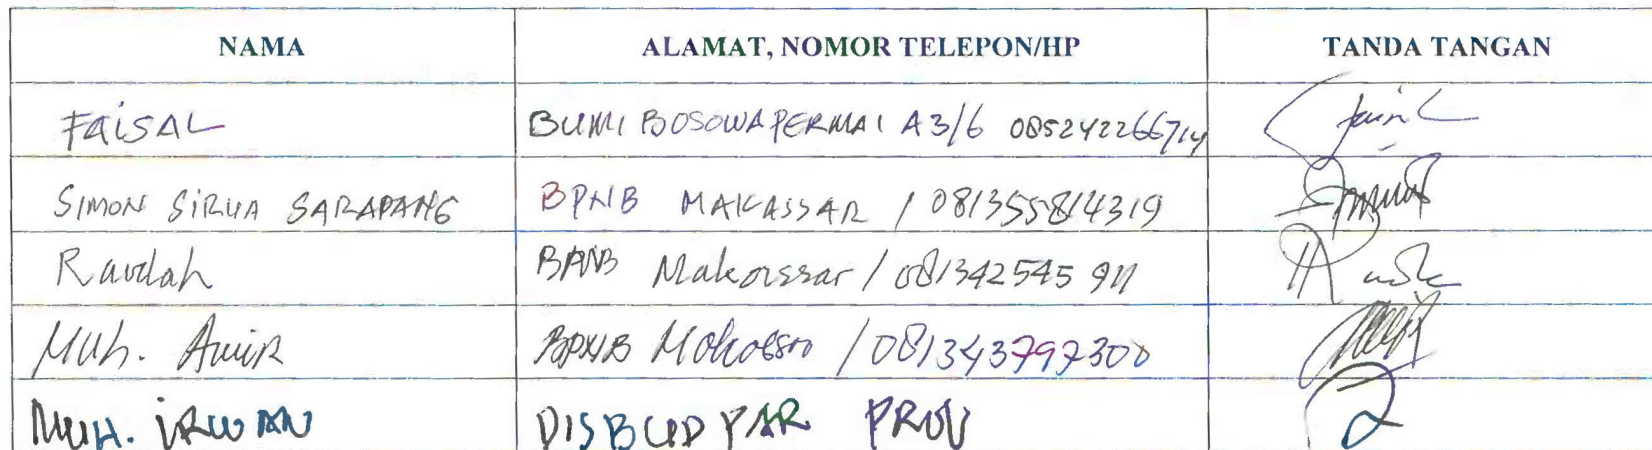 NAMA ALAMAT, NOMOR TELEPON/HP TANDA TANGAN
FAISAL BUMI BOSOWA PERMAI A3/6 085242266714
SIMON SIRUA SARAPANG BPNB MAKASSAR / 081355814319
Raudah BPNB Makassar / 081342545 911
Muh. Amir BPNB Makassar / 081343797300
MUH. IRWAN DISBUDPAR PROV